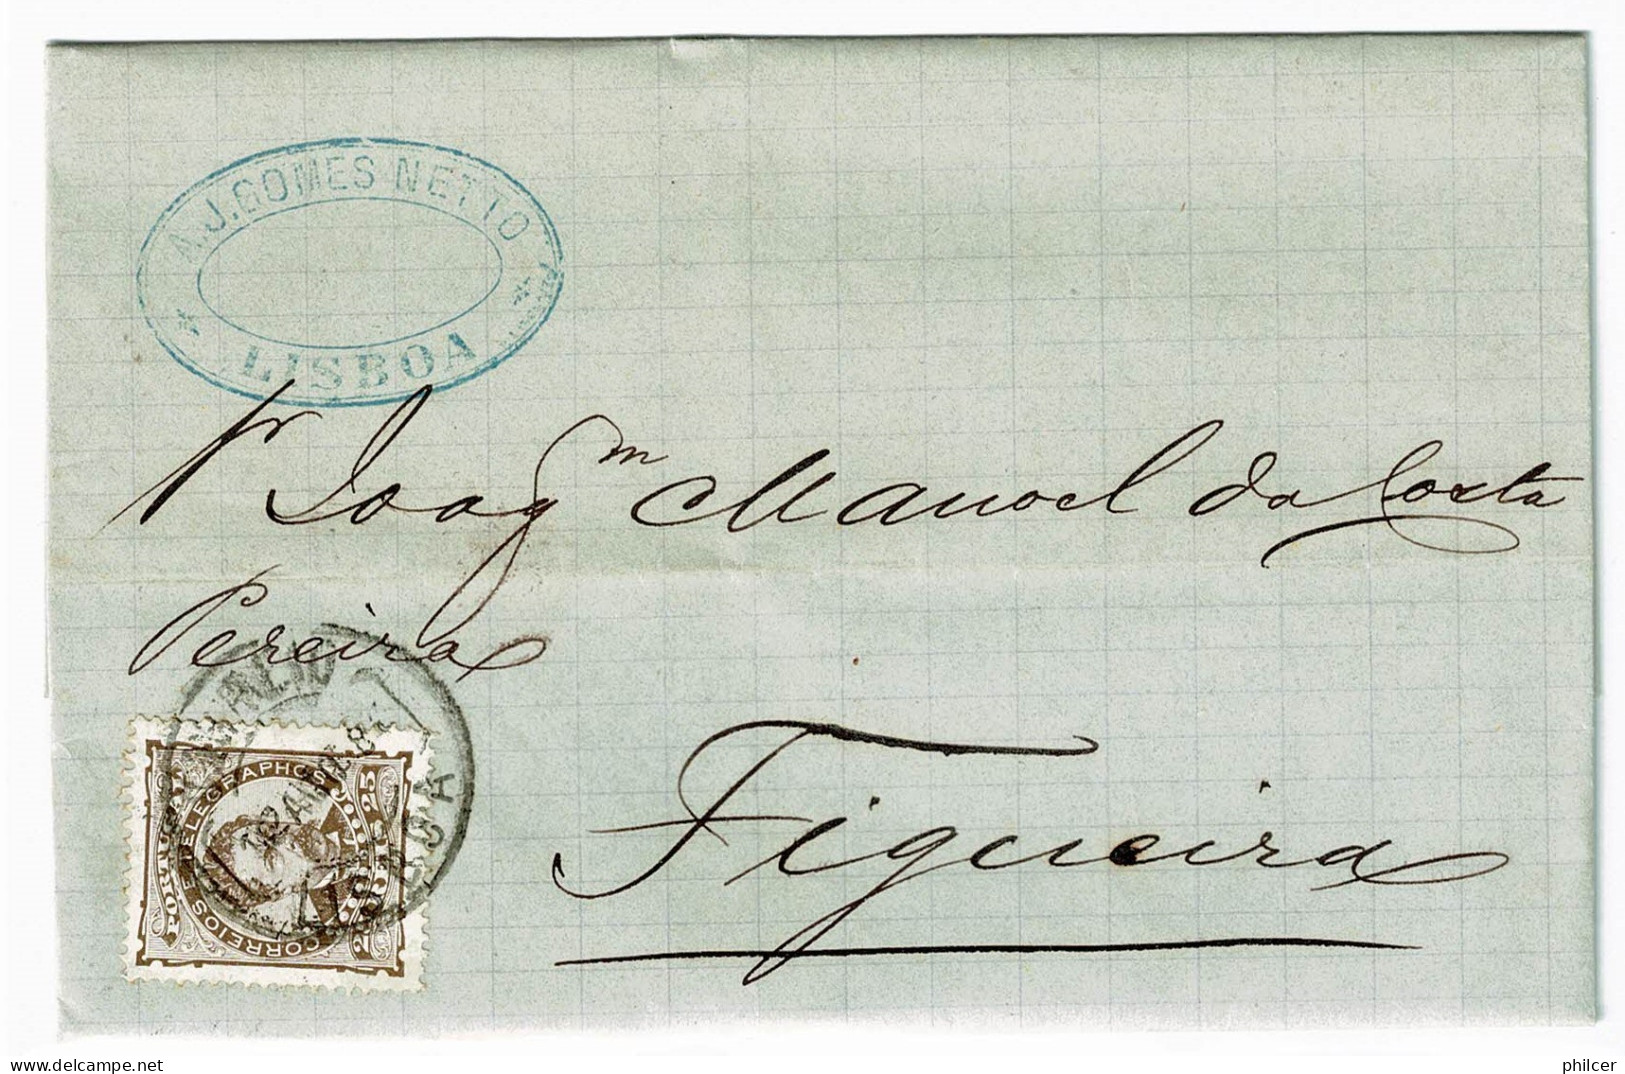 A. J. GOMES NETTO
LISBOA
Joaqm Manoel da Costa
Pereira
Figueira
PORTUGAL
CORREIOS E TELEGRAPHOS
25 25
REIS
LISBOA
delcampe.net
philcer